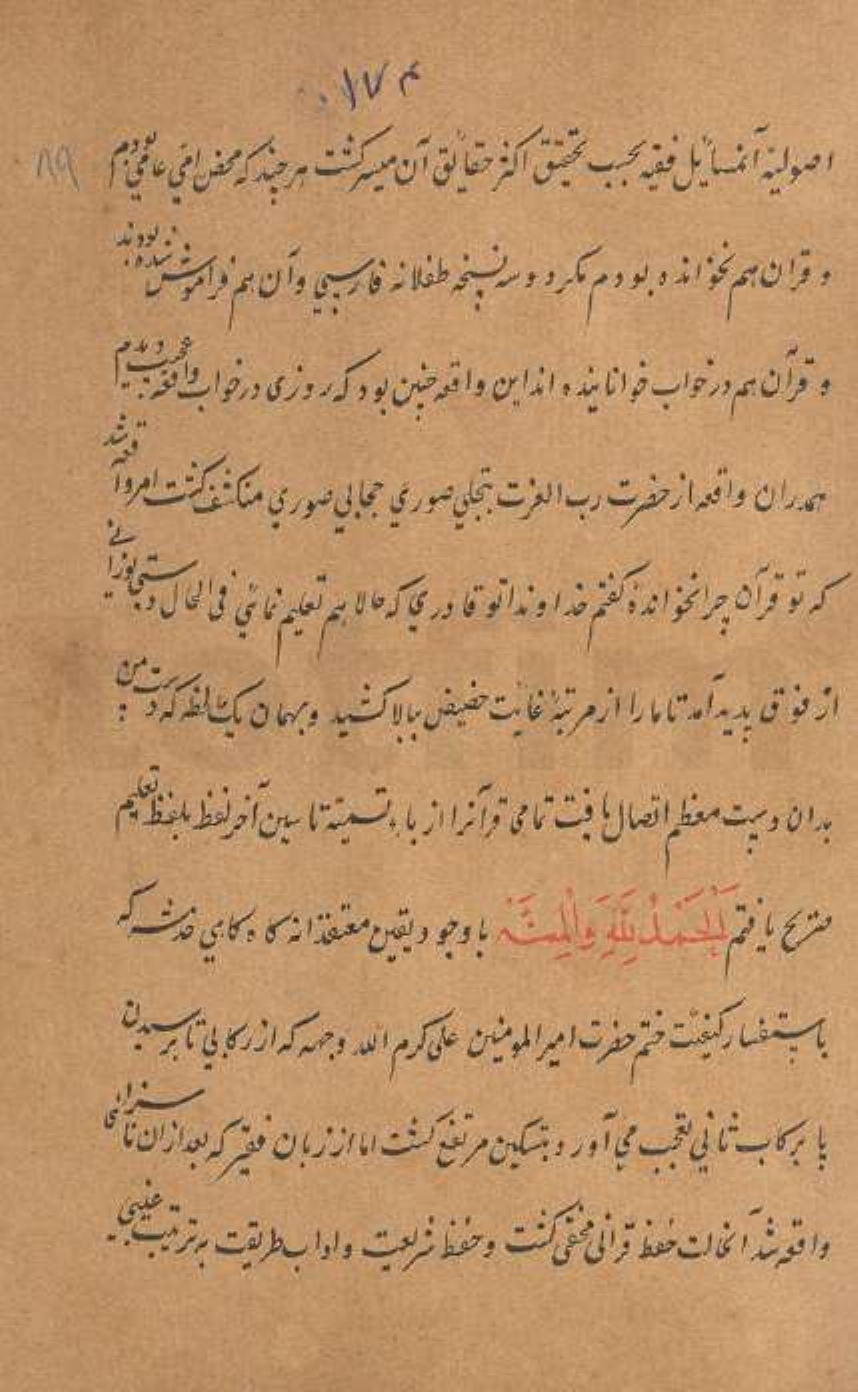 ۱۷۴
۸۹
اصولیه آنمسائل فقیه بحسب تحقیق اکثر حقایق آن میسر کشت هر چند که محض امّی عامی بودم
و قران هم نخوانده بودم مکر دو سه نسخه طفلانه فارسی وآن هم فراموش شده بودند
و قرآن هم در خواب خوانانیده اند این واقعه چنین بود که روزی در خواب واقعه عجیب دیدم
همدران واقعه از حضرت رب العزت بتجلی صوری حجابی صوری منکشف کشت امر واقعه شد
که تو قرآن چرا نخواندهٔ کفتم خداوندا تو قادری که حالا هم تعلیم نمائی فی الحال دستی نورانی
از فوق پدید آمد تا مارا از مرتبهٔ غایت حضیض ببالا کشید و بهمان یک لحظه که دست من
بدان دست معظم اتصال یافت تمامی قرآنرا از باء تسمیه تا سین آخر لفظ بلفظ تعلیم
صریح یافتم الحمد لله والمنه با وجود یقین معتقدانه کاه کاهی خدشه که
باستفسار کیفیت ختم حضرت امیر المومنین علی کرم الله وجهه که از رکابی تا برسیدن
پا برکاب ثانی تعجب می آورد بتسکین مرتفع کشت اما از زبان فقیر که بعد ازان ناسزائیها
واقعه شد آنحالت حفظ قرآنی مخفی کشت و حفظ شریعت و اداب طریقت به ترتیب غیبی